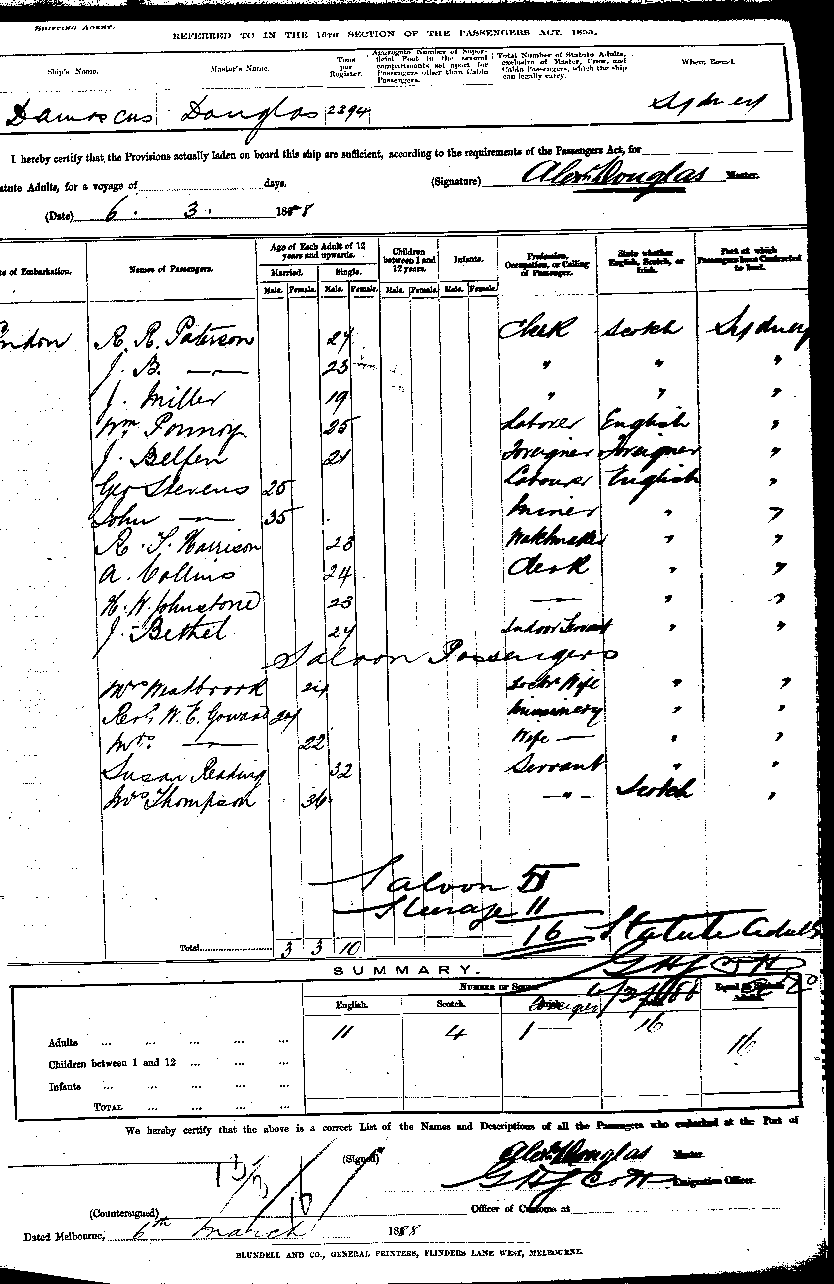 SHIPPING AGENT.
REFERRED TO IN THE 16TH SECTION OF THE PASSENGERS ACT, 1855.
Ship's Name. Master's Name. Tons per Register. Aggregate Number of Superficial Feet in the several compartments set apart for Passengers other than Cabin Passengers. Total Number of Statute Adults, exclusive of Master, Crew, and Cabin Passengers, which the ship can legally carry. Where Bound.
Damascus Douglas 2394 Sydney
I hereby certify that the Provisions actually laden on board this ship are sufficient, according to the requirements of the Passengers Act, for
tatute Adults, for a voyage of days. (Signature) Alexr Douglas Master.
(Date) 6. 3. 1888
s of Embarkation. Names of Passengers. Age of Each Adult of 12 years and upwards. Children between 1 and 12 years. Infants. Profession, Occupation, or Calling of Passenger. State whether English, Scotch, or Irish. Port at which Passengers have Contracted to land.
Married. Single.
Male. Female. Male. Female. Male. Female. Male. Female.
ndon R. R. Paterson 27 Clerk Scotch Sydney
J. B. —— 23 " " "
J. Miller 19 " " "
Wm 25 Laborer English "
J. Belfen 21 Foreigner Foreigner "
Geo Stevens 25 Labourer English "
John —— 35 Miner " "
R. S. Harrison 23 Watchmaker " "
A. Collins 24 Clerk " "
H. W. Johnstone 23 —— " "
J. Bethel 27 Indoor Servant " "
Saloon Passengers
Mrs Westbrook 24 Wife " "
Revd W. E. Goward 24 Missionary " "
Mrs —— 22 Wife — " "
Susan Reading 32 Servant " "
Mrs Thompson 36 —"— Scotch "
Saloon 5
Steerage 11
16 Statute Adults
Total 3 3 10
SUMMARY.
English. Scotch. Foreigner
Adults ... ... ... ... 11 4 1 — 16 16
Children between 1 and 12 ... ... ...
Infants ... ... ... ...
TOTAL ... ... ...
We hereby certify that the above is a correct List of the Names and Descriptions of all the Passengers who embarked at the Port of
(Signed) Alexr Douglas Master.
Emigration Officer.
(Countersigned) Officer of Customs at
Dated Melbourne, 6th March 1888
BLUNDELL AND CO., GENERAL PRINTERS, FLINDERS LANE WEST, MELBOURNE.